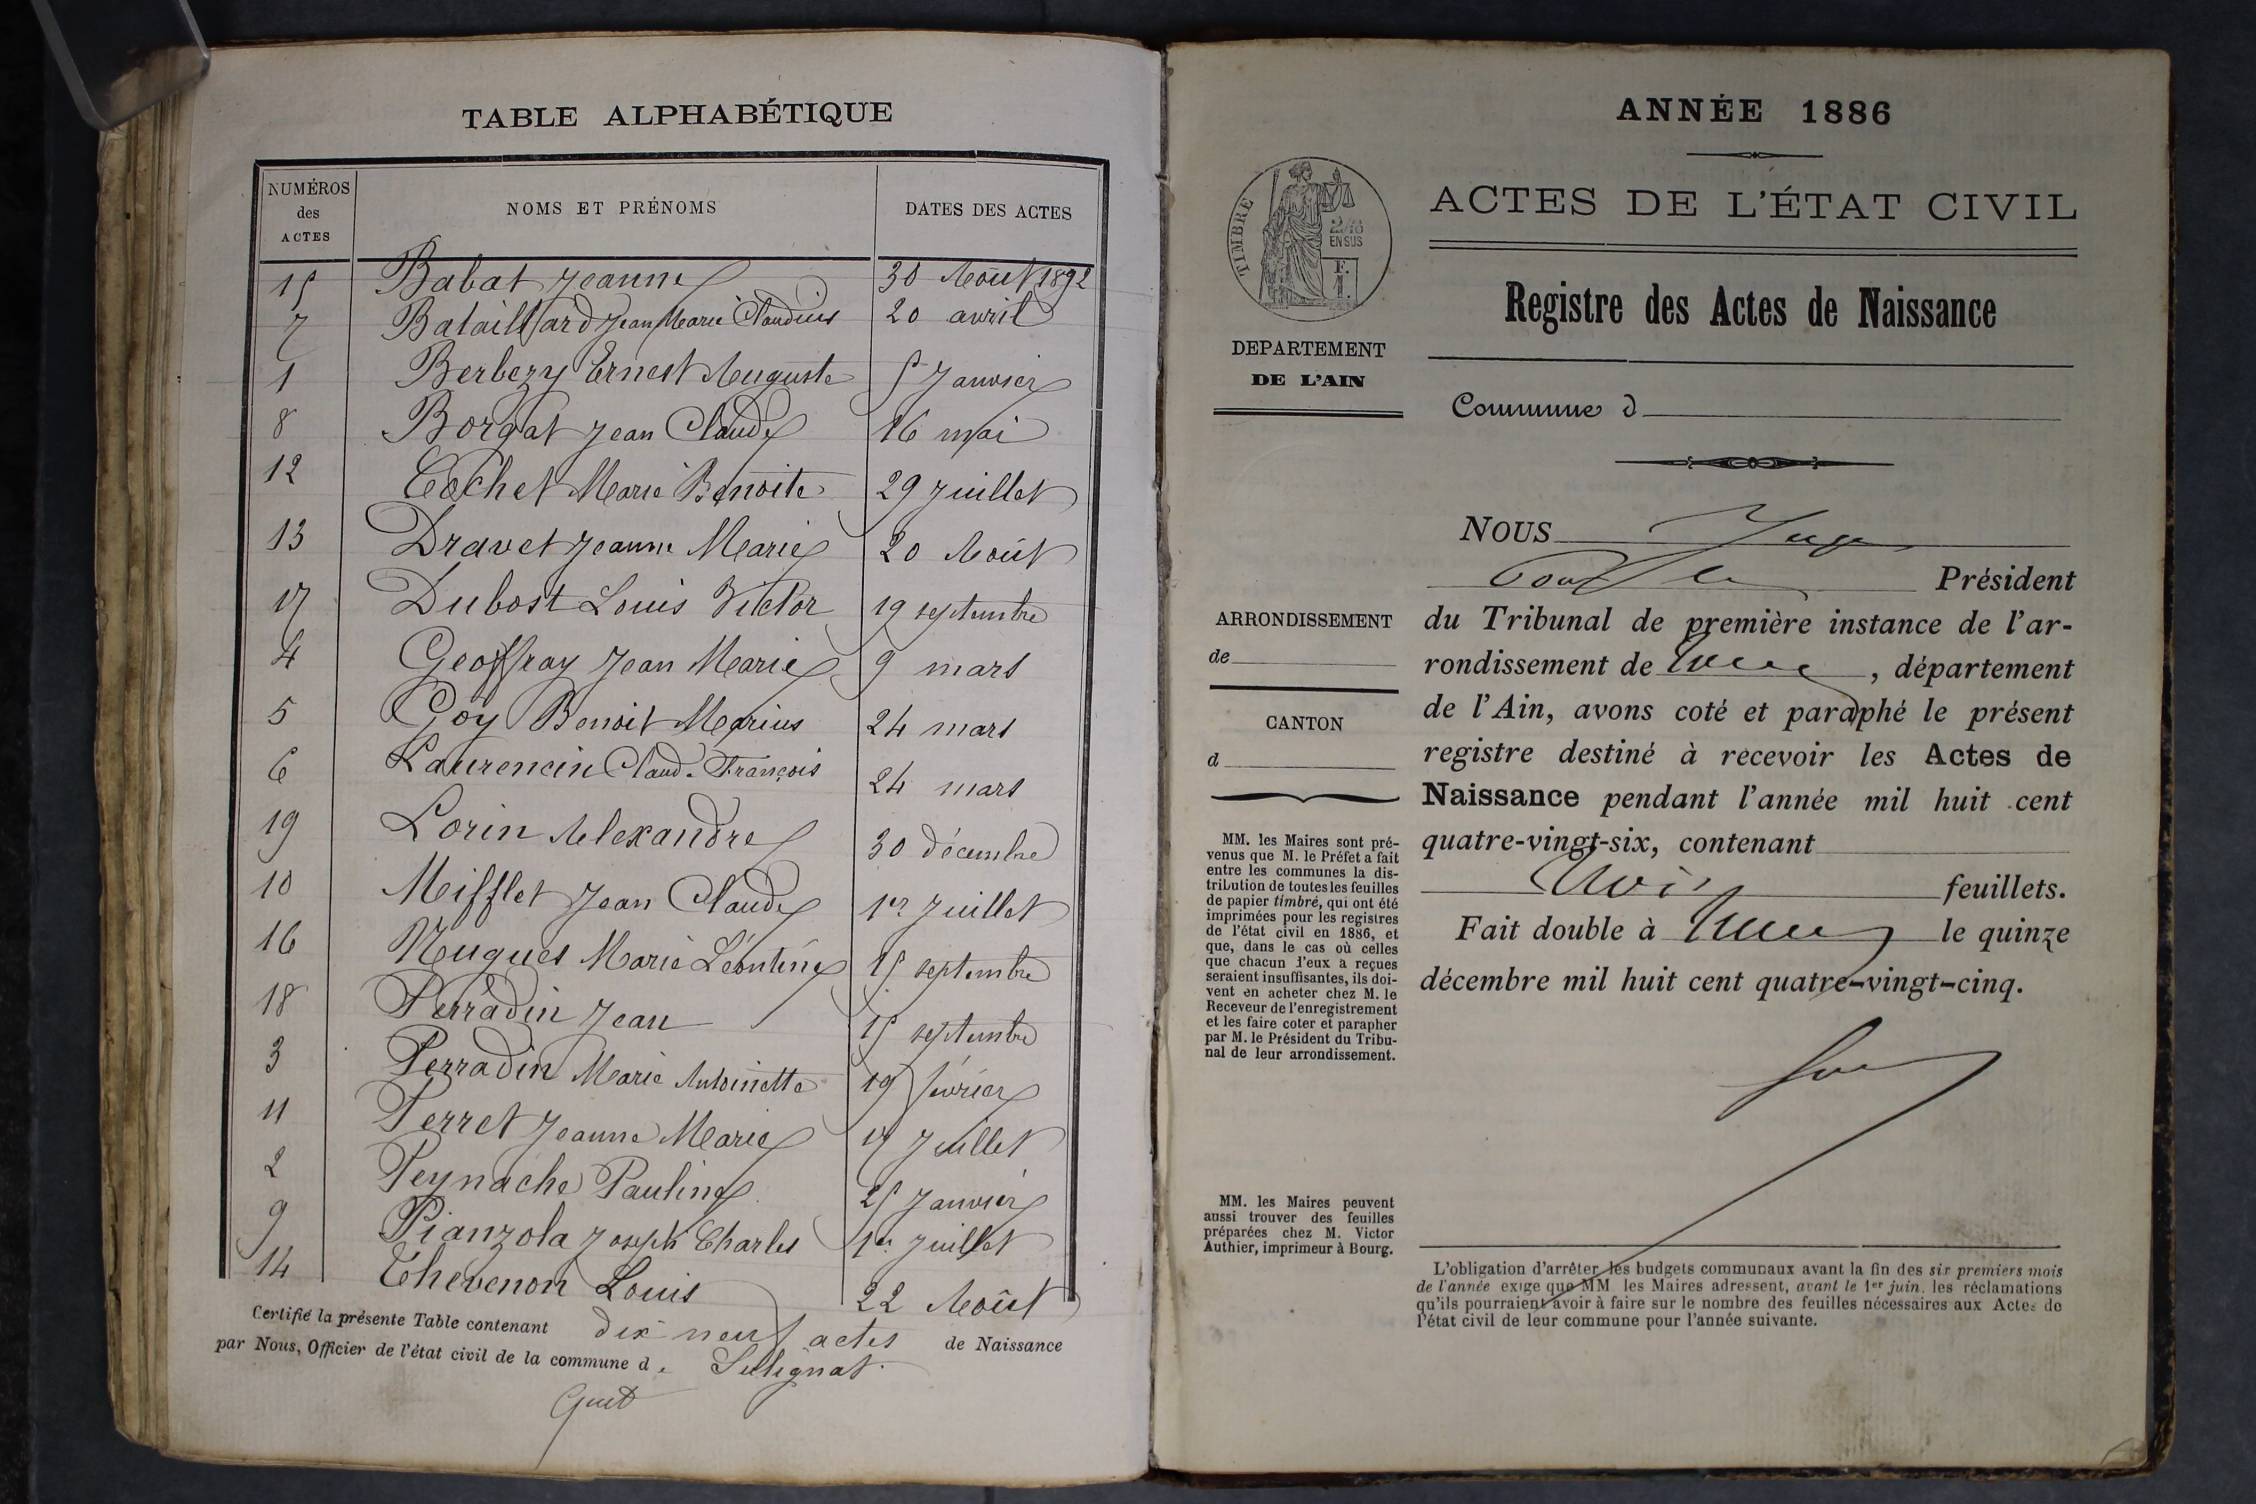 TABLE ALPHABÉTIQUE
NUMÉROS des ACTES NOMS ET PRÉNOMS DATES DES ACTES
15 Babat Jeanne 30 Août 1892
7 Bataillard Jean Marie Claudius 20 avril
1 Berbezy Ernest Auguste 5 Janvier
8 Borgat Jean Claude 16 mai
12 Cochet Marie Benoite 29 Juillet
13 Dravet Jeanne Marie 20 Août
17 Dubost Louis Victor 19 septembre
4 Geoffray Jean Marie 9 mars
5 Goy Benoit Marius 24 mars
6 Laurencin Claude François 24 mars
19 Lorin Alexandre 30 décembre
10 Mifflet Jean Claude 1er Juillet
16 Nugues Marie Léontine 15 septembre
18 Perradin Jean 15 septembre
3 Perradin Marie Antoinette 19 février
11 Perret Jeanne Marie 17 Juillet
2 Peynache Pauline 25 Janvier
9 Pianzola Joseph Charles 1er Juillet
14 Thevenon Louis 22 Août
Certifié la présente Table contenant dix neuf actes de Naissance
par Nous, Officier de l'état civil de la commune de Sulignat.
ANNÉE 1886
TIMBRE
2/10
EN SUS
F.
1.
DEPARTEMENT
DE L'AIN
ACTES DE L'ÉTAT CIVIL
Registre des Actes de Naissance
Commune d
ARRONDISSEMENT
de
CANTON
d
MM. les Maires sont pré-
venus que M. le Préfet a fait
entre les communes la dis-
tribution de toutes les feuilles
de papier timbré, qui ont été
imprimées pour les registres
de l'état civil en 1886, et
que, dans le cas où celles
que chacun d'eux a reçues
seraient insuffisantes, ils doi-
vent en acheter chez M. le
Receveur de l'enregistrement
et les faire coter et parapher
par M. le Président du Tribu-
nal de leur arrondissement.
MM. les Maires peuvent
aussi trouver des feuilles
préparées chez M. Victor
Authier, imprimeur à Bourg.
NOUS Juge
Pour le Président
du Tribunal de première instance de l'ar-
rondissement de , département
de l'Ain, avons coté et paraphé le présent
registre destiné à recevoir les Actes de
Naissance pendant l'année mil huit cent
quatre-vingt-six, contenant
feuillets.
Fait double à le quinze
décembre mil huit cent quatre-vingt-cinq.
L'obligation d'arrêter les budgets communaux avant la fin des six premiers mois
de l'année exige que MM. les Maires adressent, avant le 1er juin, les réclamations
qu'ils pourraient avoir à faire sur le nombre des feuilles nécessaires aux Actes de
l'état civil de leur commune pour l'année suivante.